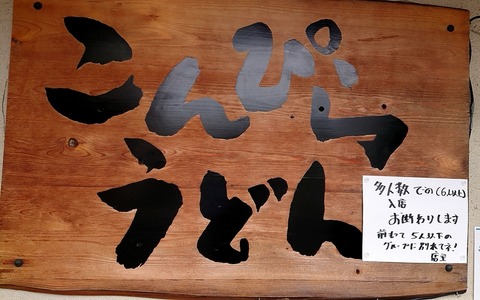 こんぴら
うどん
多人数での(6人以上)
入店
お断わりします
前もって5人以下の
グループに別れてネ!
店主